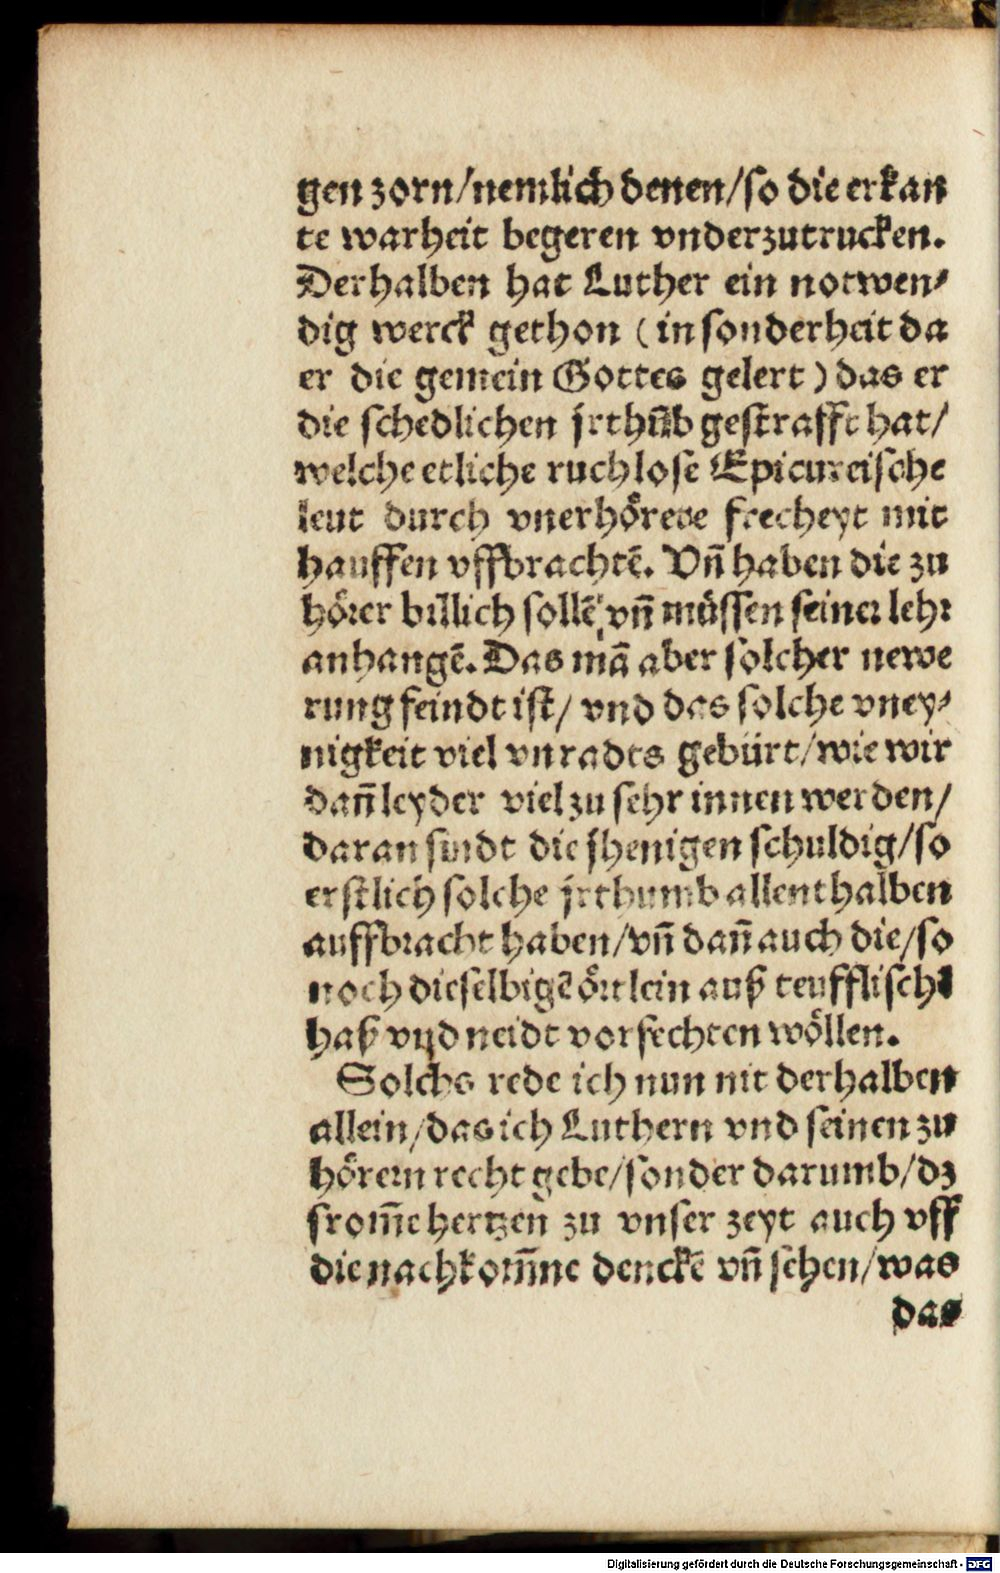 gen zorn/nemlich denen/so die erkan
te warheit begeren vnderzutrucken.
Derhalben hat Luther ein notwen⸗
dig werck gethon (in sonderheit da
er die gemein Gottes gelert) das er
die schedlichen jrthũb gestrafft hat/
welche etliche ruchlose Epicureische
leut durch vnerhörete frecheyt mit
hauffen vffbrachtẽ. Vñ haben die zu
hörer billich sollẽ vñ müssen seiner lehr
anhangẽ. Das mã aber solcher newe
rung feindt ist/ vnd das solche vney⸗
nigkeit viel vnradts gebürt/wie wir
dañ leyder viel zu sehr innen werden/
daran sindt die jhenigen schuldig/so
erstlich solche jrthumb allenthalben
auffbracht haben/vñ dañ auch die/so
noch dieselbigẽ örtlein auß teufflischẽ
haß vnd neidt vorfechten wöllen.
Solchs rede ich nun nit derhalben
allein/das ich Luthern vnd seinen zu
hörern recht gebe/sonder darumb/dz
from̃e hertzen zu vnser zeyt auch vff
die nachkom̃ne denckẽ vñ sehen/was
das
Digitalisierung gefördert durch die Deutsche Forschungsgemeinschaft - DFG